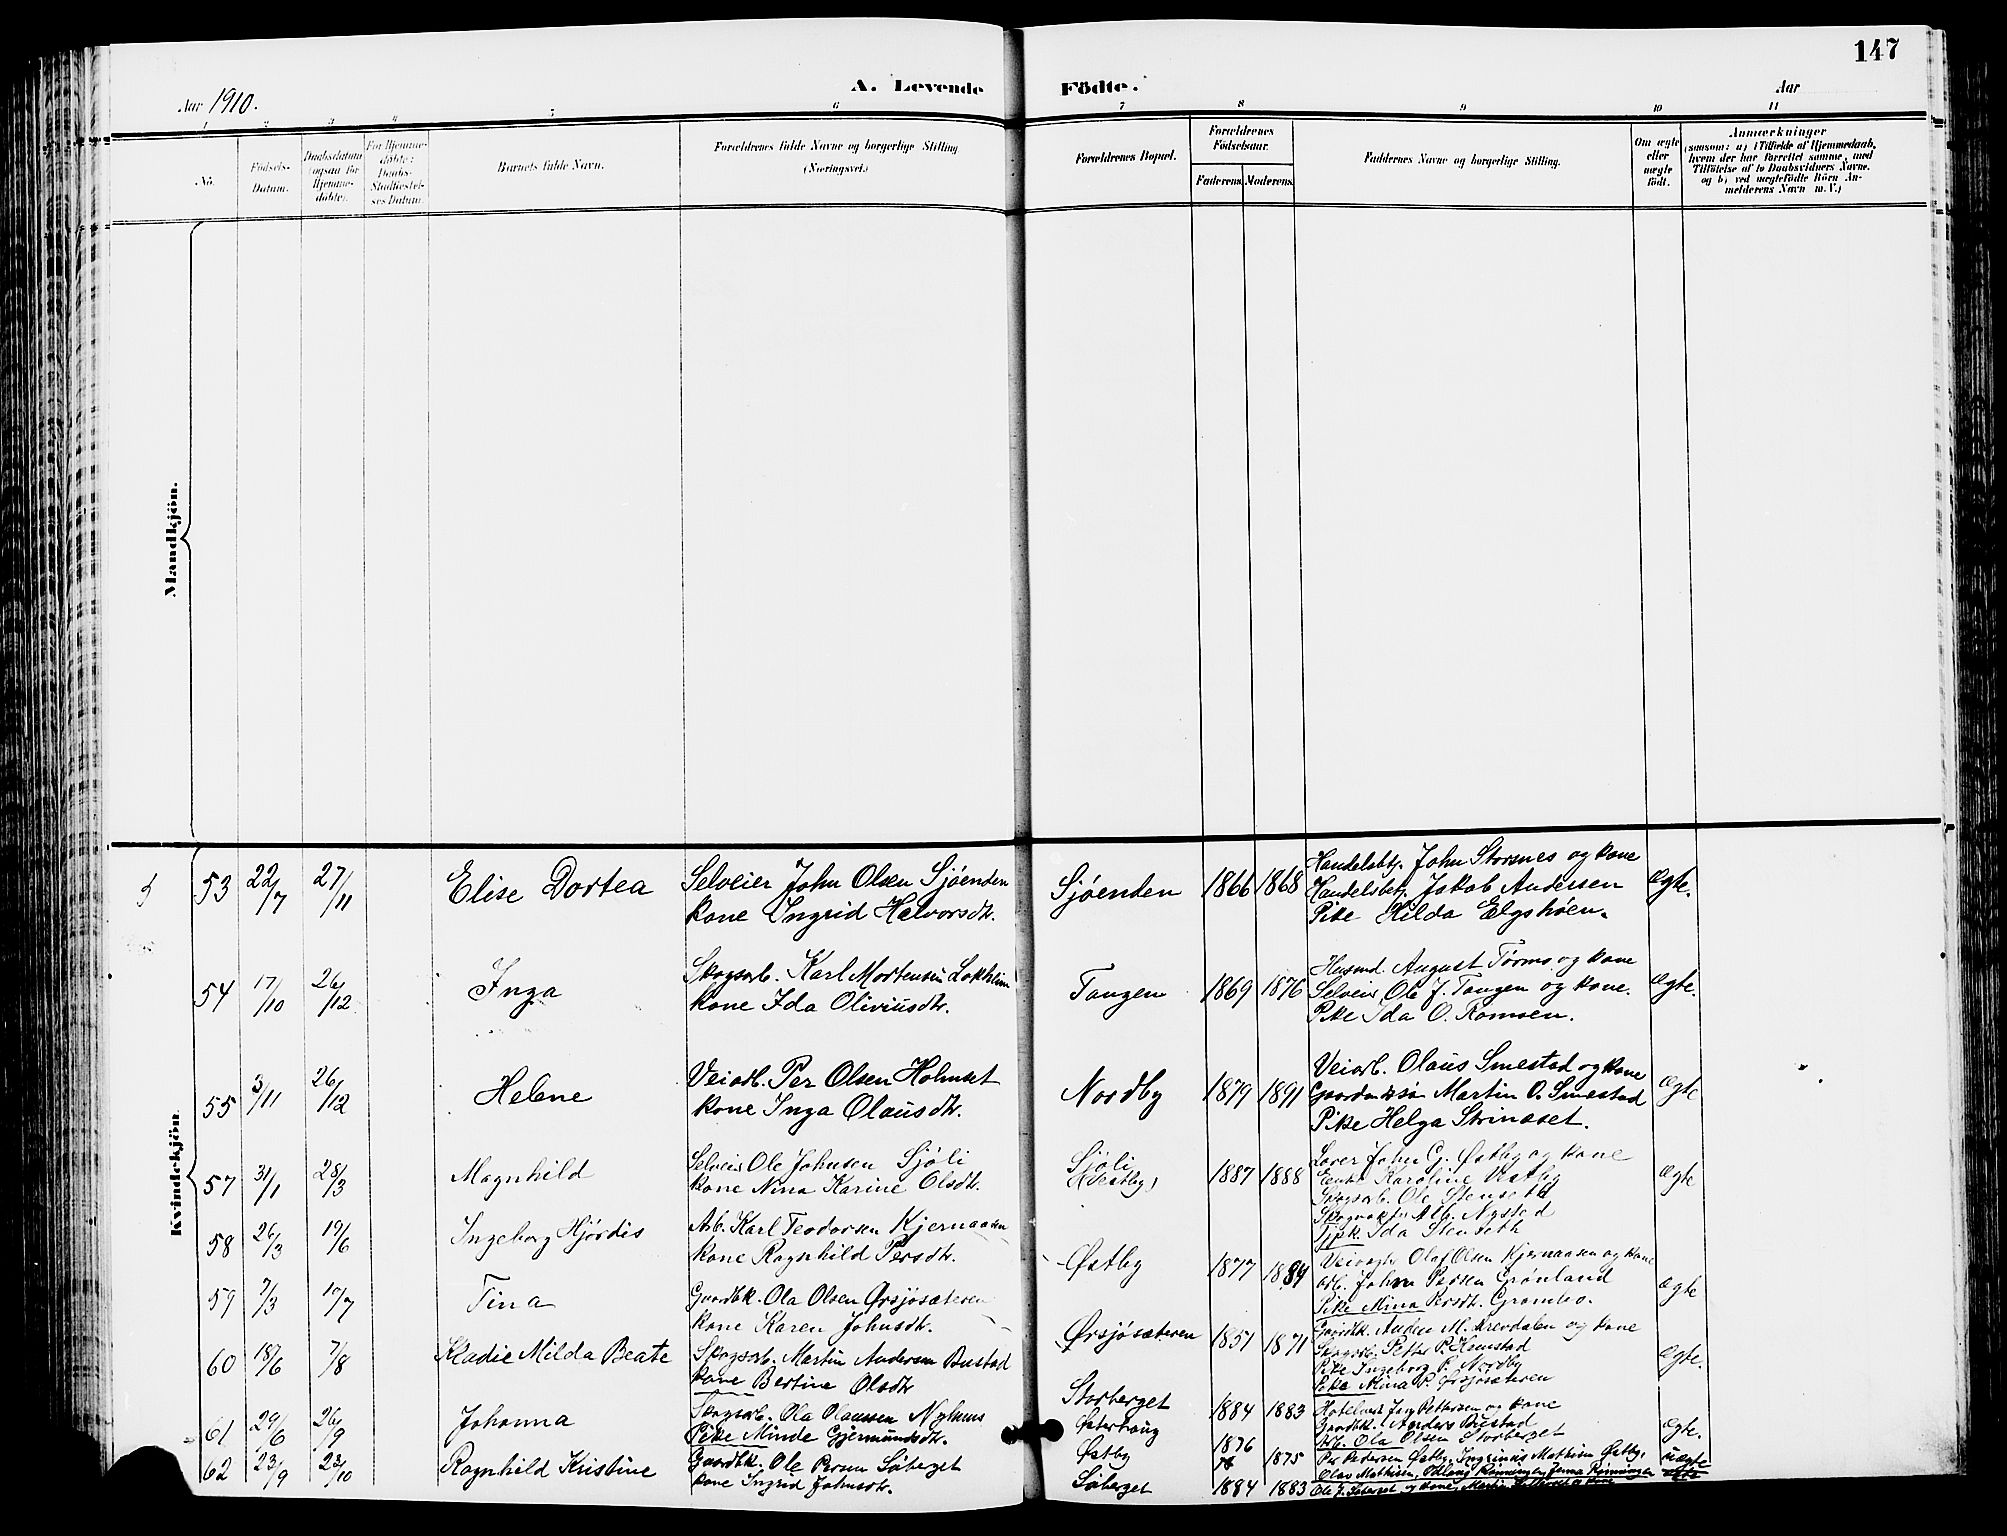 147
Aar 1910.
A. Levende
Födte.
Aar
1 2 3 4 5 6 7 8 9 10 11
No.
Födsels-
Datum.
Daabsdatum
(ogsaa for
Hjemme-
döbte).
For Hjemme-
döbte:
Daabs-
Stadfæstel-
ses Datum.
Barnets fulde Navn.
Forældrenes fulde Navne og borgerlige Stilling
(Næringsvei.)
Forældrenes Bopæl.
Forældrenes
Födselsaar.
Faderens. Moderens.
Faddernes Navne og borgerlige Stilling.
Om ægte
eller
uægte
födt.
Anmærkninger
(saasom: a) i Tilfælde af Hjemmedaab,
hvem der har forrettet samme, med
Tilföielse af to Daabsvidners Navne.
og b) ved uægtefödte Börn An-
melderens Navn m. V.)
Mandkjön.
Kvindekjön.
53 22/7 27/11 Elise Dortea
Selveier John Olsen Sjøenden
kone Ingrid Halvorsdtr.
Sjøenden 1866 1868
Handelsbtj. John Storsnes og kone
Handelsbetj. Jakob Andersen
Pike Hilda Elgshøen.
ægte.
54 17/10 26/12 Inga
Skogsarb. Karl Mortensen Lokheim
kone Ida Oliviusdtr.
Tangen 1869 1876
Husmd. August Tørmo og kone
Selveier Ole J. Tangen og kone.
Pike Ida O. Romsen.
ægte.
55 3/11 26/12 Helene
Veiarb. Per Olsen Holmset
kone Inga Olausdtr.
Nordby 1879 1891
Veiarb. Olaus Smestad og kone
Gaardmdssøn Martin O. Smestad
Pike Helga Strinaset.
ægte
57 31/1 28/3 Magnhild
Selveier Ole Johnsen Sjøli
kone Nina Karine Olsdtr.
Sjøli
(Vestby) 1887 1888
Lærer John G. Østby og kone
Enke Karoline Vestby
Skogsarb. Ole Stenseth
Skogvokter Alb. Nysted
Tjpik. Ida Stenseth
ægte
58 26/3 19/6 Ingeborg Hjørdis
Arb. Karl Teodorsen Kjernaasen
kone Ragnhild Persdtr.
Østby 1877 1884
Veivogter Olaf Olsen Kjernaasen og kone
Arb. Johan Persen Grønland
Pike Mina Persdtr. Grambo.
ægte
59 7/3 10/7 Tina
Gaardbk. Ola Olsen Ørsjøsæteren
kone Karen Johnsdtr.
Ørsjøsæteren 1851 1871
Gaardbk. Anden M. Drevdalen og kone
Skogsarb. Petter P. Hemstad
Pike Ingeborg P. Nordby
Pike Mina P. Ørsjøsæteren
ægte.
60 18/6 7/8 Kladie Milda Beate
Skogsarb. Martin Andersen Bustad
kone Bertine Olsdtr
Storberget 1884 1883
Hotelvert Ing Pettersen og kone
Gaardbk. Anders Bustad
Arb. Ola Olsen Storberget
ægte.
61 29/6 26/9 Johanna
Skogsarb. Ola Olaussen Nyhuus
Pike Minde Gjermundsdtr.
Østerhaug
Østby 1876 1875
Per Pedersen Østby, Ingrinius Mathisen Østby,
Olav Mathisen,
uægte
62 23/9 23/10 Ragnhild Kristine
Gaardbk. Ole Persen Søberget
kone Ingrid Johnsdtr.
Søberget 1884 1883